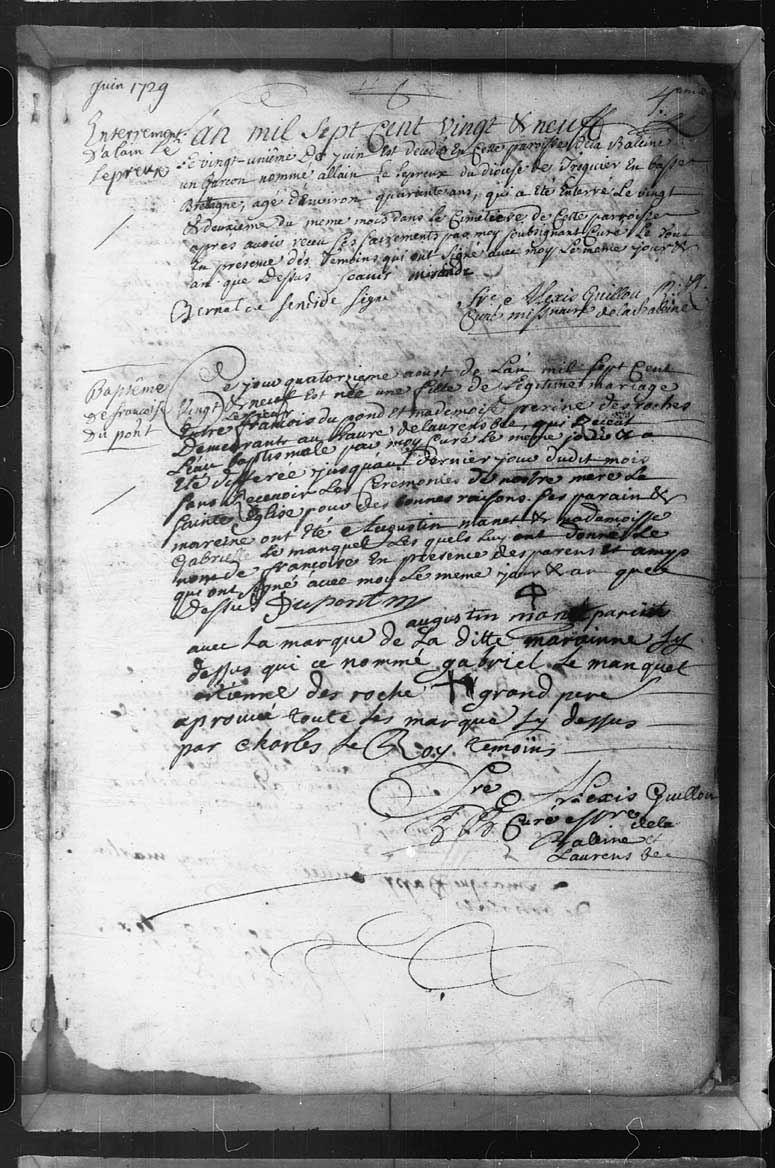 Juin 1729
Enterrement
d'alain Le
Lepreux
Lan mil Sept Cent Vingt & neuf
Le vingt-unième De juin Est decedé En Cette paroisse de la Baleine
un garçon nommé allain Le Lepreux du diocese de Treguier En basse
Bretagne, agé d'Environ quarante ans, qui a été Enterré Le vingt
& deuxième du meme mois dans Le Cimetiere de Cette parroisse
apres avoir receu Les sacrements par moy soubsignant Curé Le tout
En presence des temoins qui ont signé avec moy Le meme jour &
an que Dessus scavoir mirande
Bernal de signé
Fre Alexis Guillou
Curé missnaire de la Baleine
Baptême
de françoise
Du pont
Ce jour quatorzieme aoust de Lan mil sept Cent
Vingt & neuf Est née une fille de Légitime mariage
Entre Le sieur françois du pond et mademoise perine des roches
Demeurants au havre de laurensbée, qui Receut
L'eau baptismale par moy Curé Le meme jour & a
Eté differée jusquau dernier jour dudit mois
sans Recevoir Les Ceremonies de nostre mere La
sainte Eglise pour des bonnes raisons. Les parain &
mareine ont été Augustin manet & mademoisse
Gabrielle Le manquel Les quels Luy ont donné Le
nom de françoise En presence des parens et amys
qui ont signé avec moy Le meme jour & an que
Dessus Dupont
augustin manet parein
avec La marque de La ditte marainne Sy
dessus qui ce nommé gabriel Le manquel
etienne des roche grand pere
aprouvé toute Les marque Sy dessus
par charles Le Roy temoins
Fre Alexis Guillou
Curé
de la
Baleine et
Laurens bec